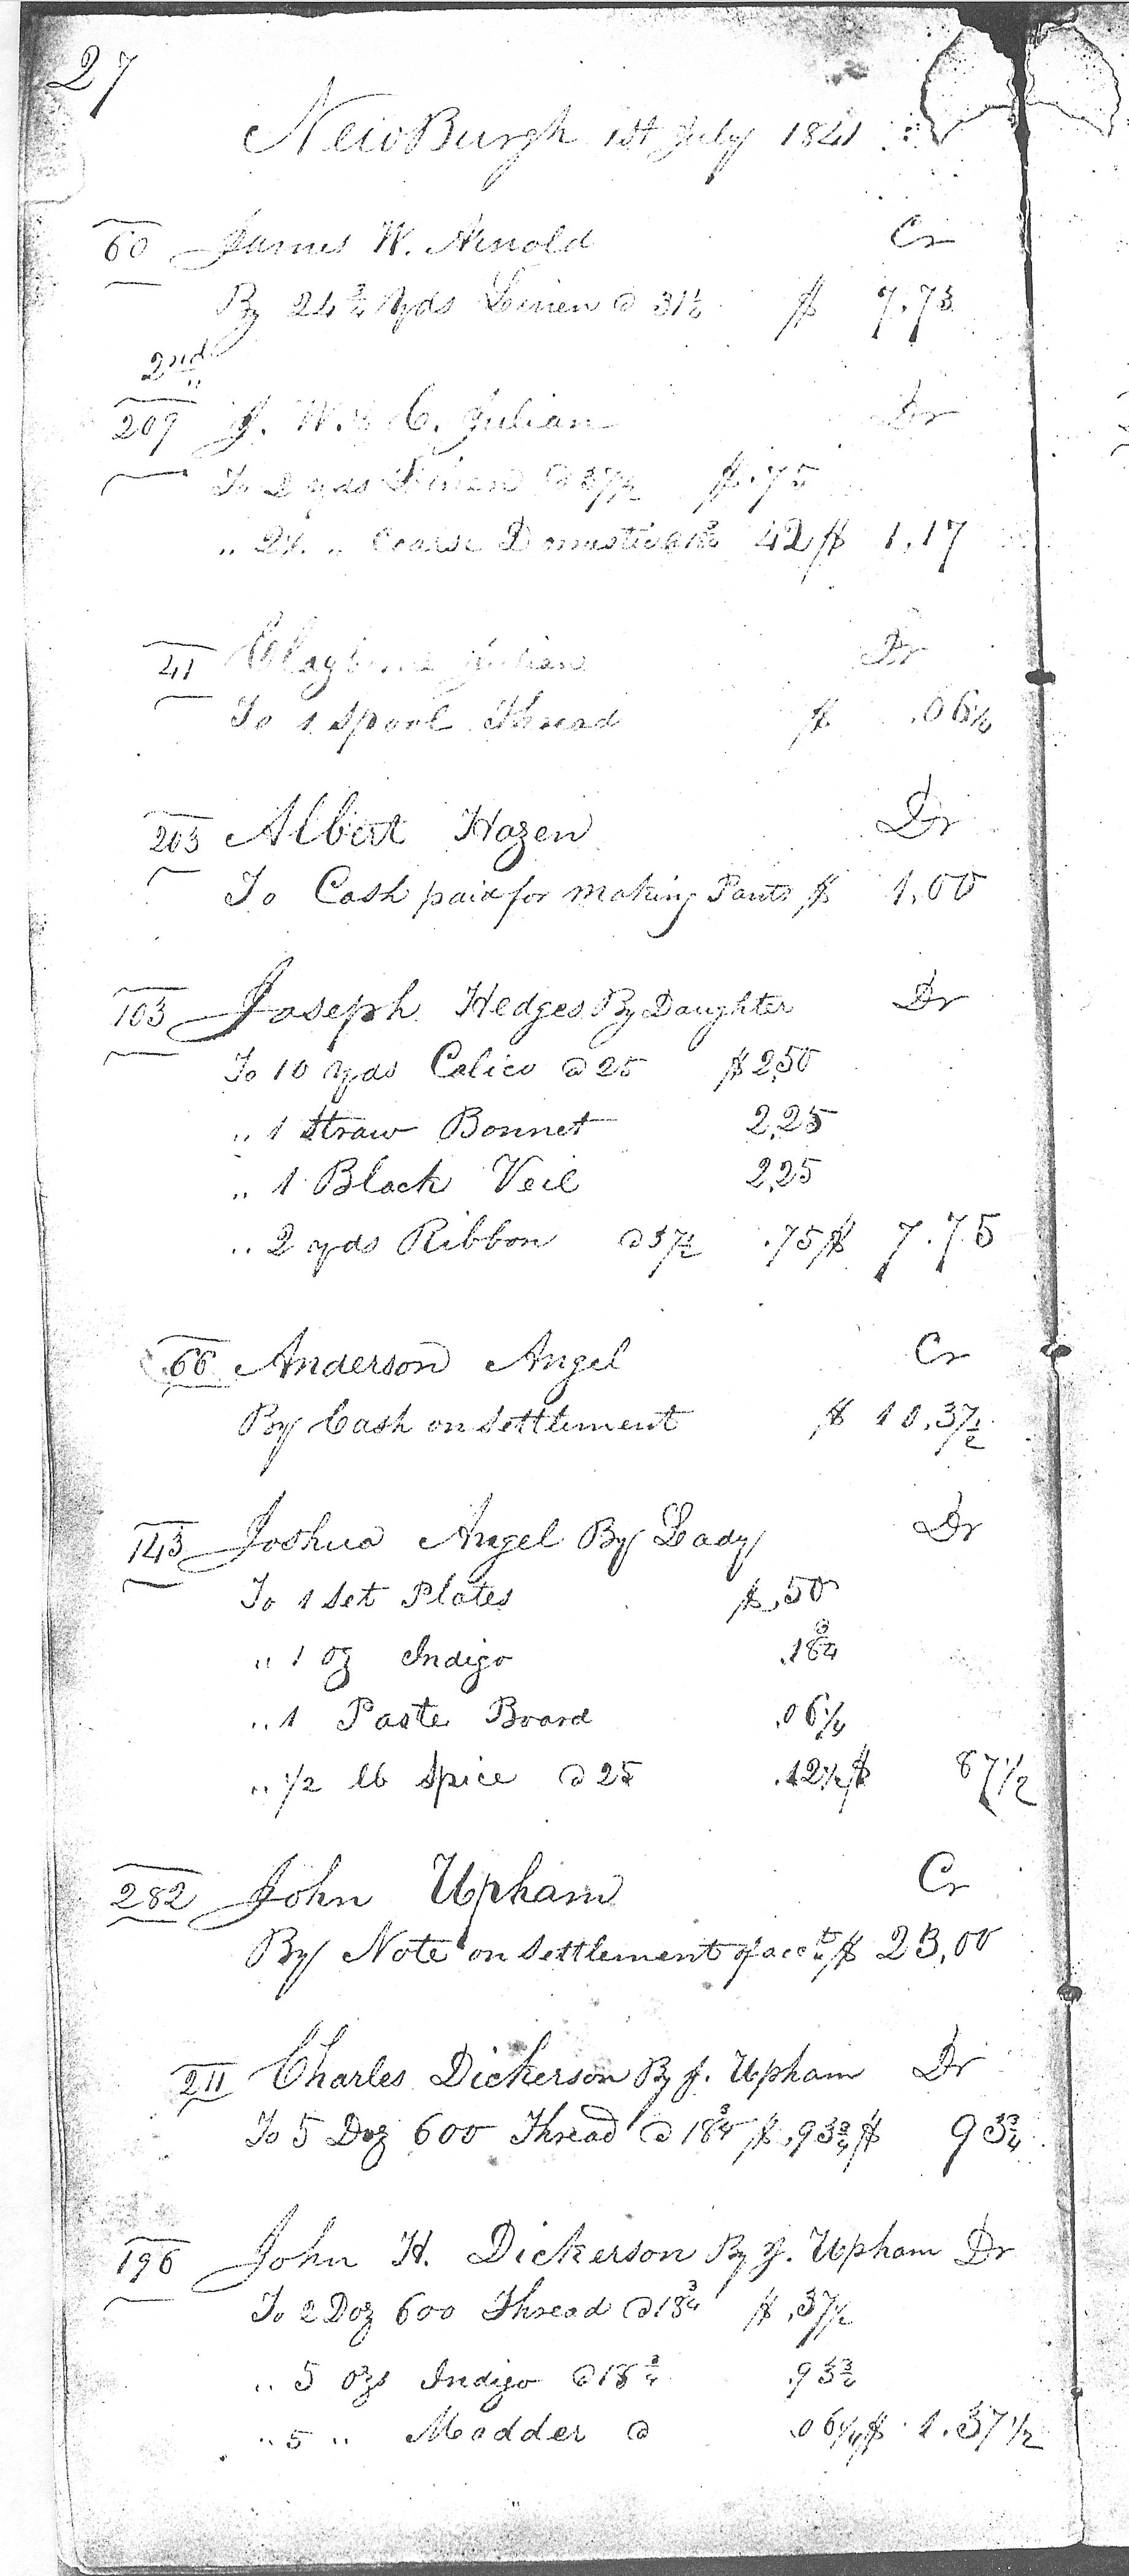 27
NewBurgh 1st July 1841
60 James W. Arnold Cr
By 24 3/4 Yds Linen @ 31 1/4 $ 7.73
2nd "
209 J. W. & C. Julian Dr
To 2 yds Linen @ 37 1/2 $.75
" 2 " Coarse 42 $ 1.17
41 Julian Dr
To 1 Spool Thread $ .06 1/4
203 Albert Hazen Dr
To Cash paid for making Pants $ 1.00
103 Joseph Hedges By Daughter Dr
To 10 Yds Calico @ 25 $ 2.50
" 1 Straw Bonnet 2.25
" 1 Black Veil 2.25
" 2 yds Ribbon @ 37 1/2 .75 $ 7.75
66 Anderson Angel Cr
By Cash on Settlement $ 10.37 1/2
143 Joshua Angel By Lady Dr
To 1 Set Plates $ .50
" 1 oz Indigo .18 3/4
" 1 Paste Board .06 1/4
" 1/2 lb Spice @ 25 .12 1/2 $ 87 1/2
282 John Upham Cr
By Note on Settlement of acct $ 23,00
211 Charles Dickerson By J. Upham Dr
To 5 Doz 600 Thread @ 18 3/4 $ .93 3/4 $ 93 3/4
196 John H. Dickerson By J. Upham Dr
To 2 Doz 600 Thread @ 18 3/4 $ .37 1/2
" 5 ozs Indigo @ 18 3/4 .93 3/4
" 5 " Madder @ .06 1/4 $ 1.37 1/2